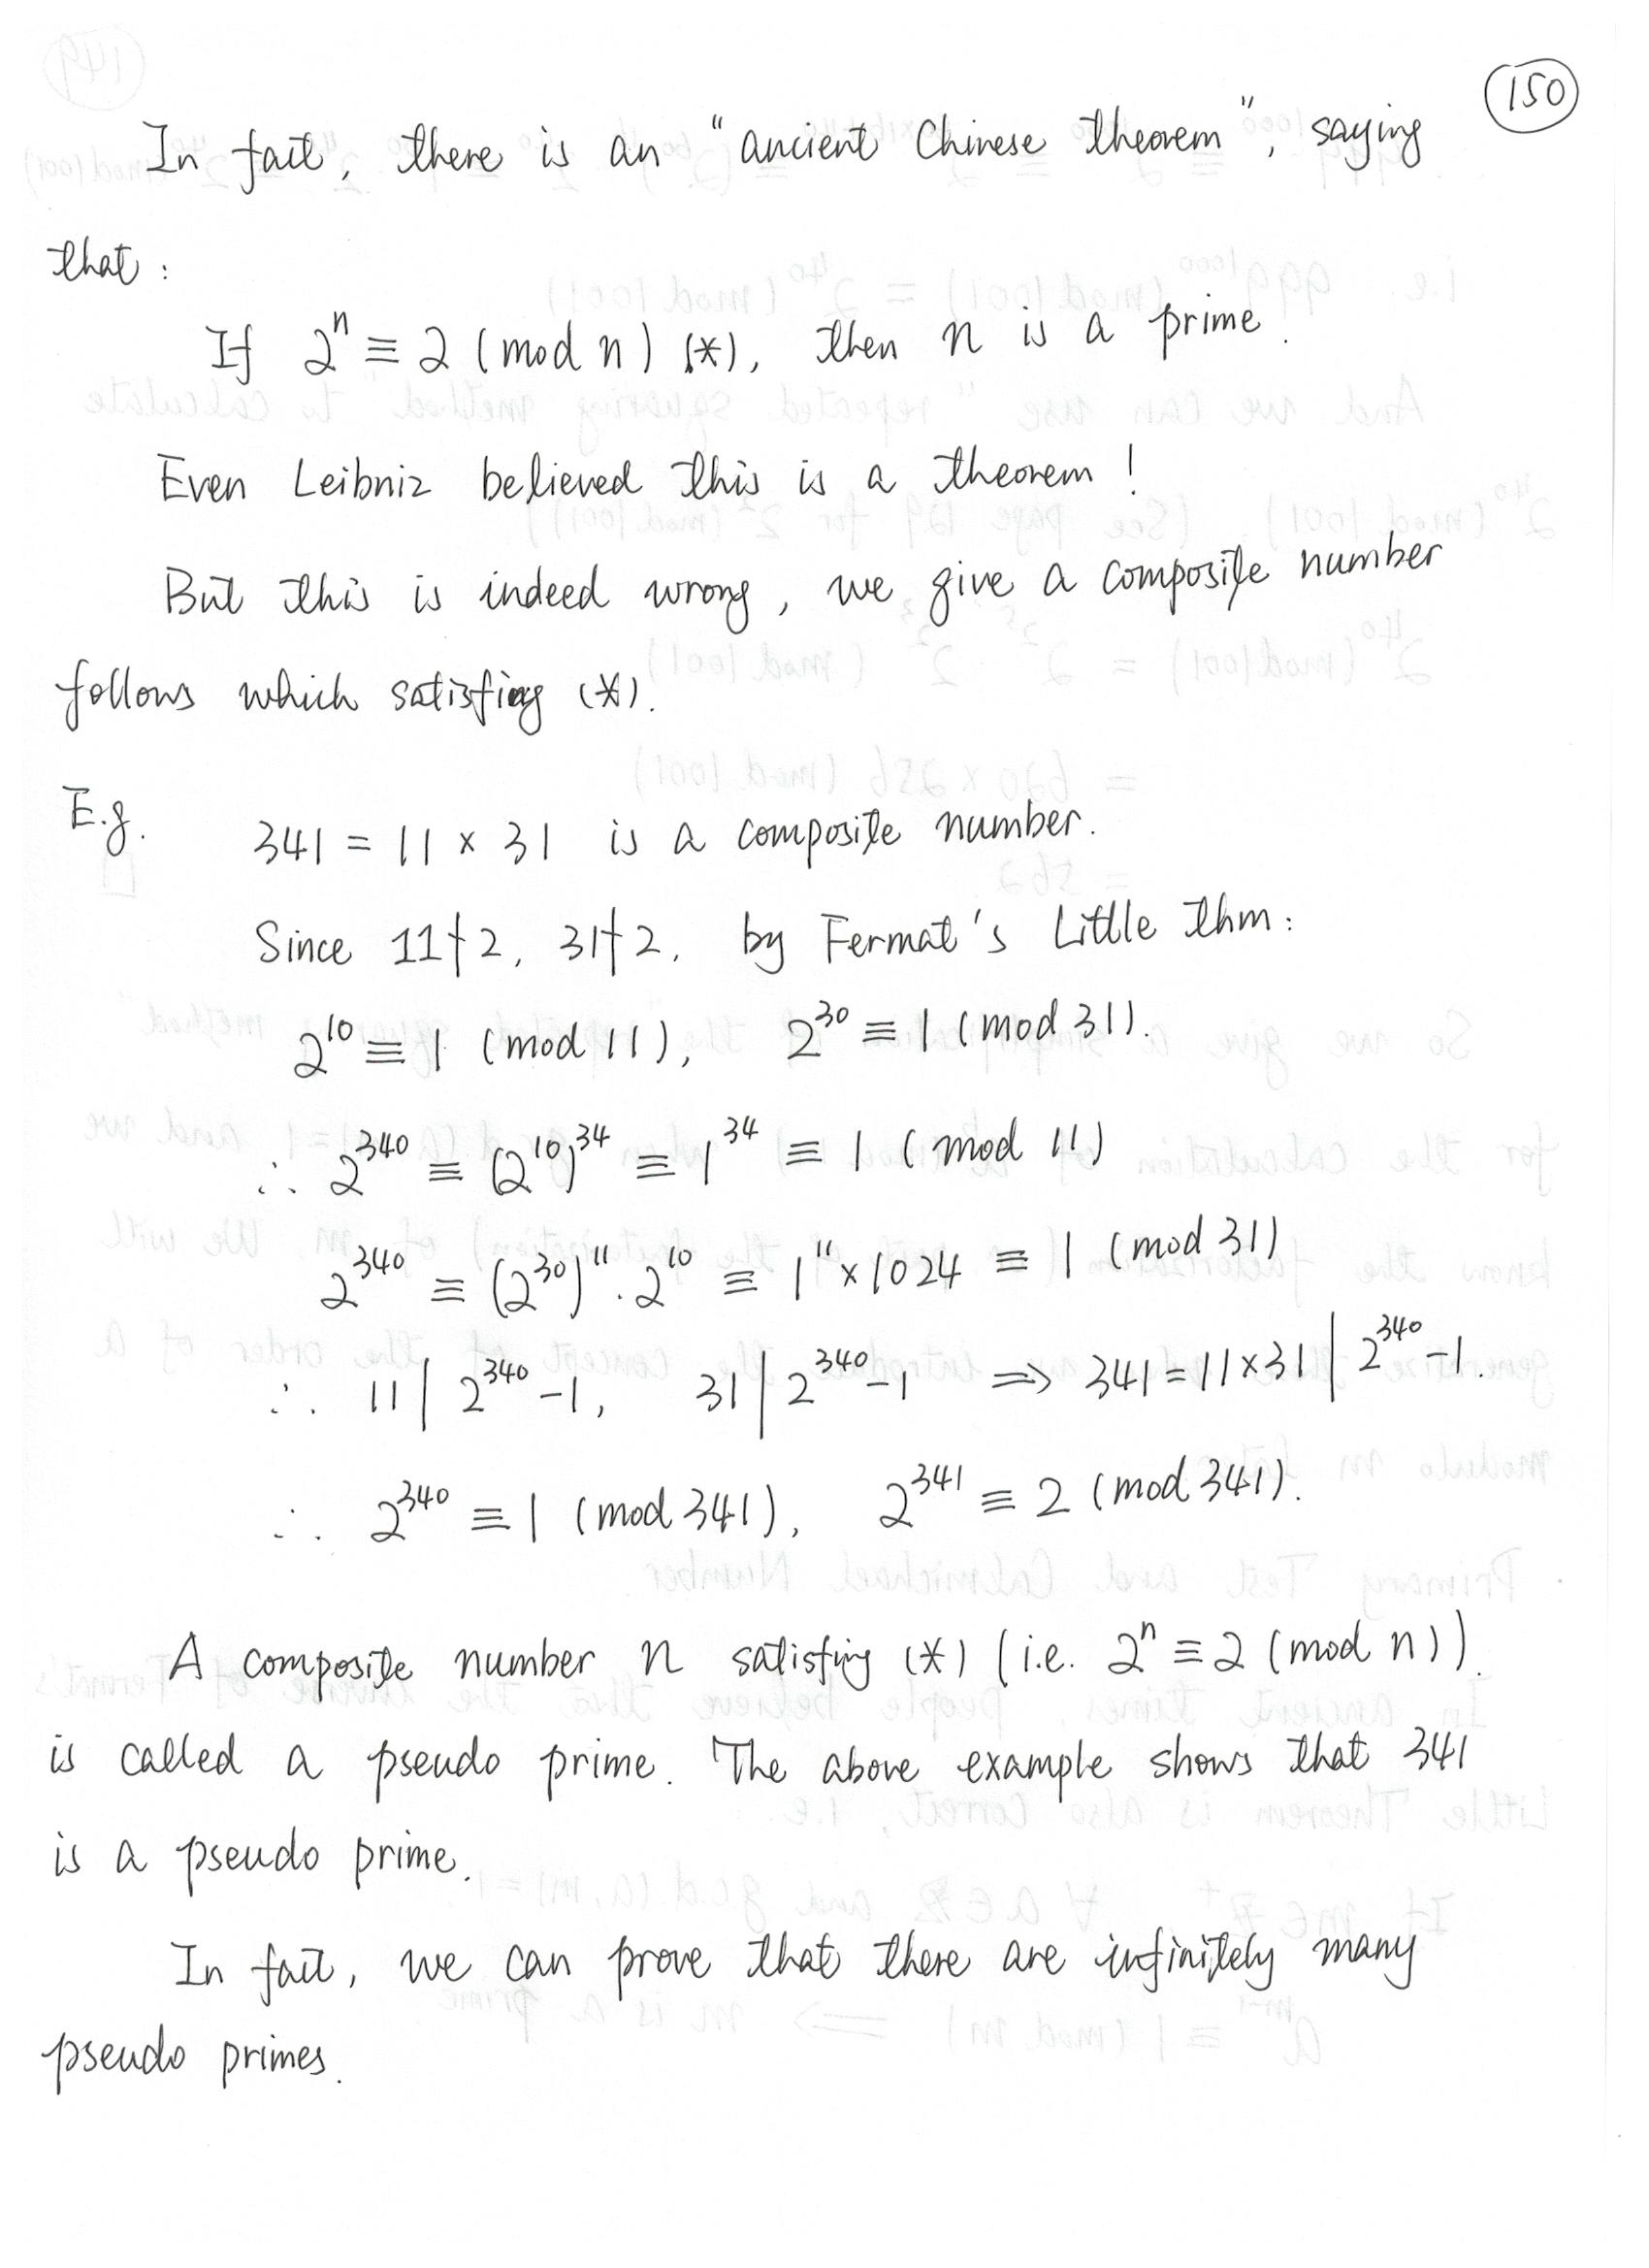 150
In fact, there is an "ancient Chinese theorem", saying
that:
If 2^n ≡ 2 (mod n) (*), then n is a prime.
Even Leibniz believed this is a theorem!
But this is indeed wrong, we give a composite number
follows which satisfing (*).
E.g. 341 = 11 × 31 is a composite number.
Since 11∤2, 31∤2, by Fermat's Little thm:
2^10 ≡ 1 (mod 11), 2^30 ≡ 1 (mod 31).
∴ 2^340 ≡ (2^10)^34 ≡ 1^34 ≡ 1 (mod 11)
2^340 ≡ (2^30)^11 · 2^10 ≡ 1^11 × 1024 ≡ 1 (mod 31)
∴ 11 | 2^340 - 1, 31 | 2^340 - 1 ⇒ 341 = 11×31 | 2^340 - 1.
∴ 2^340 ≡ 1 (mod 341), 2^341 ≡ 2 (mod 341).
A composite number n satisfing (*) (i.e. 2^n ≡ 2 (mod n)).
is called a pseudo prime. The above example shows that 341
is a pseudo prime.
In fact, we can prove that there are infinitely many
pseudo primes.